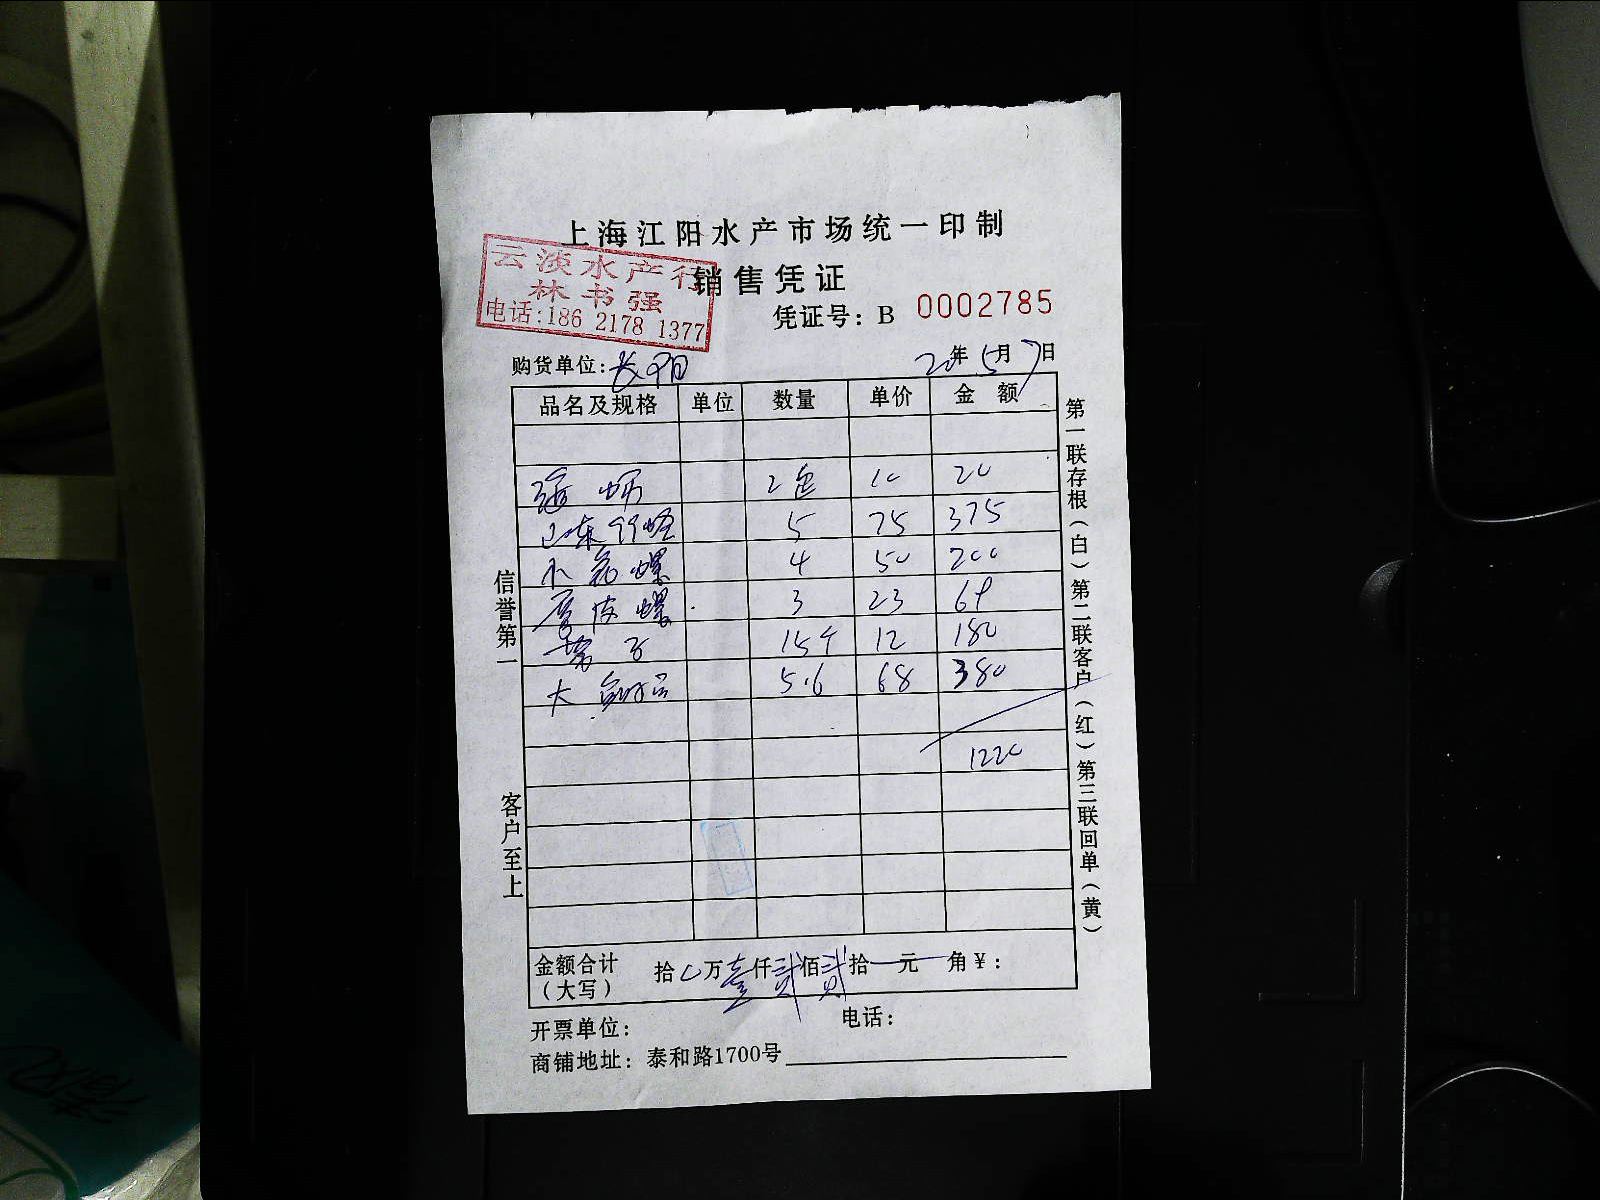 上海江阳水产市场统一印制
云淡水产行
林书强
电话:186 2178 1377
销售凭证
凭证号：B 0002785
购货单位：长阳
20年5月7日
品名及规格 单位 数量 单价 金额
海蛎 2包 10 20
山东 5 75 375
小花螺 4 50 200
皮螺 3 23 69
15个 12 180
大 5.6 68 380
1220
信誉第一
客户至上
第一联存根（白）第二联客户（红）第三联回单（黄）
金额合计（大写） 拾万壹仟贰佰贰拾元角¥：
开票单位： 电话：
商铺地址：泰和路1700号